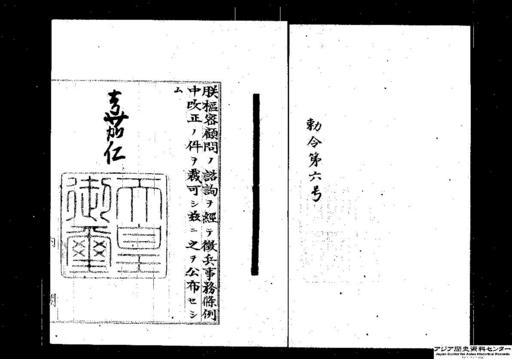 勅令第六号
朕樞密顧問ノ諮詢ヲ經テ徴兵事務條例
中改正ノ件ヲ裁可シ茲ニ之ヲ公布セシ
ム
嘉仁
天皇
御璽
内 閣
アジア歴史資料センター
Japan Center for Asian Historical Records